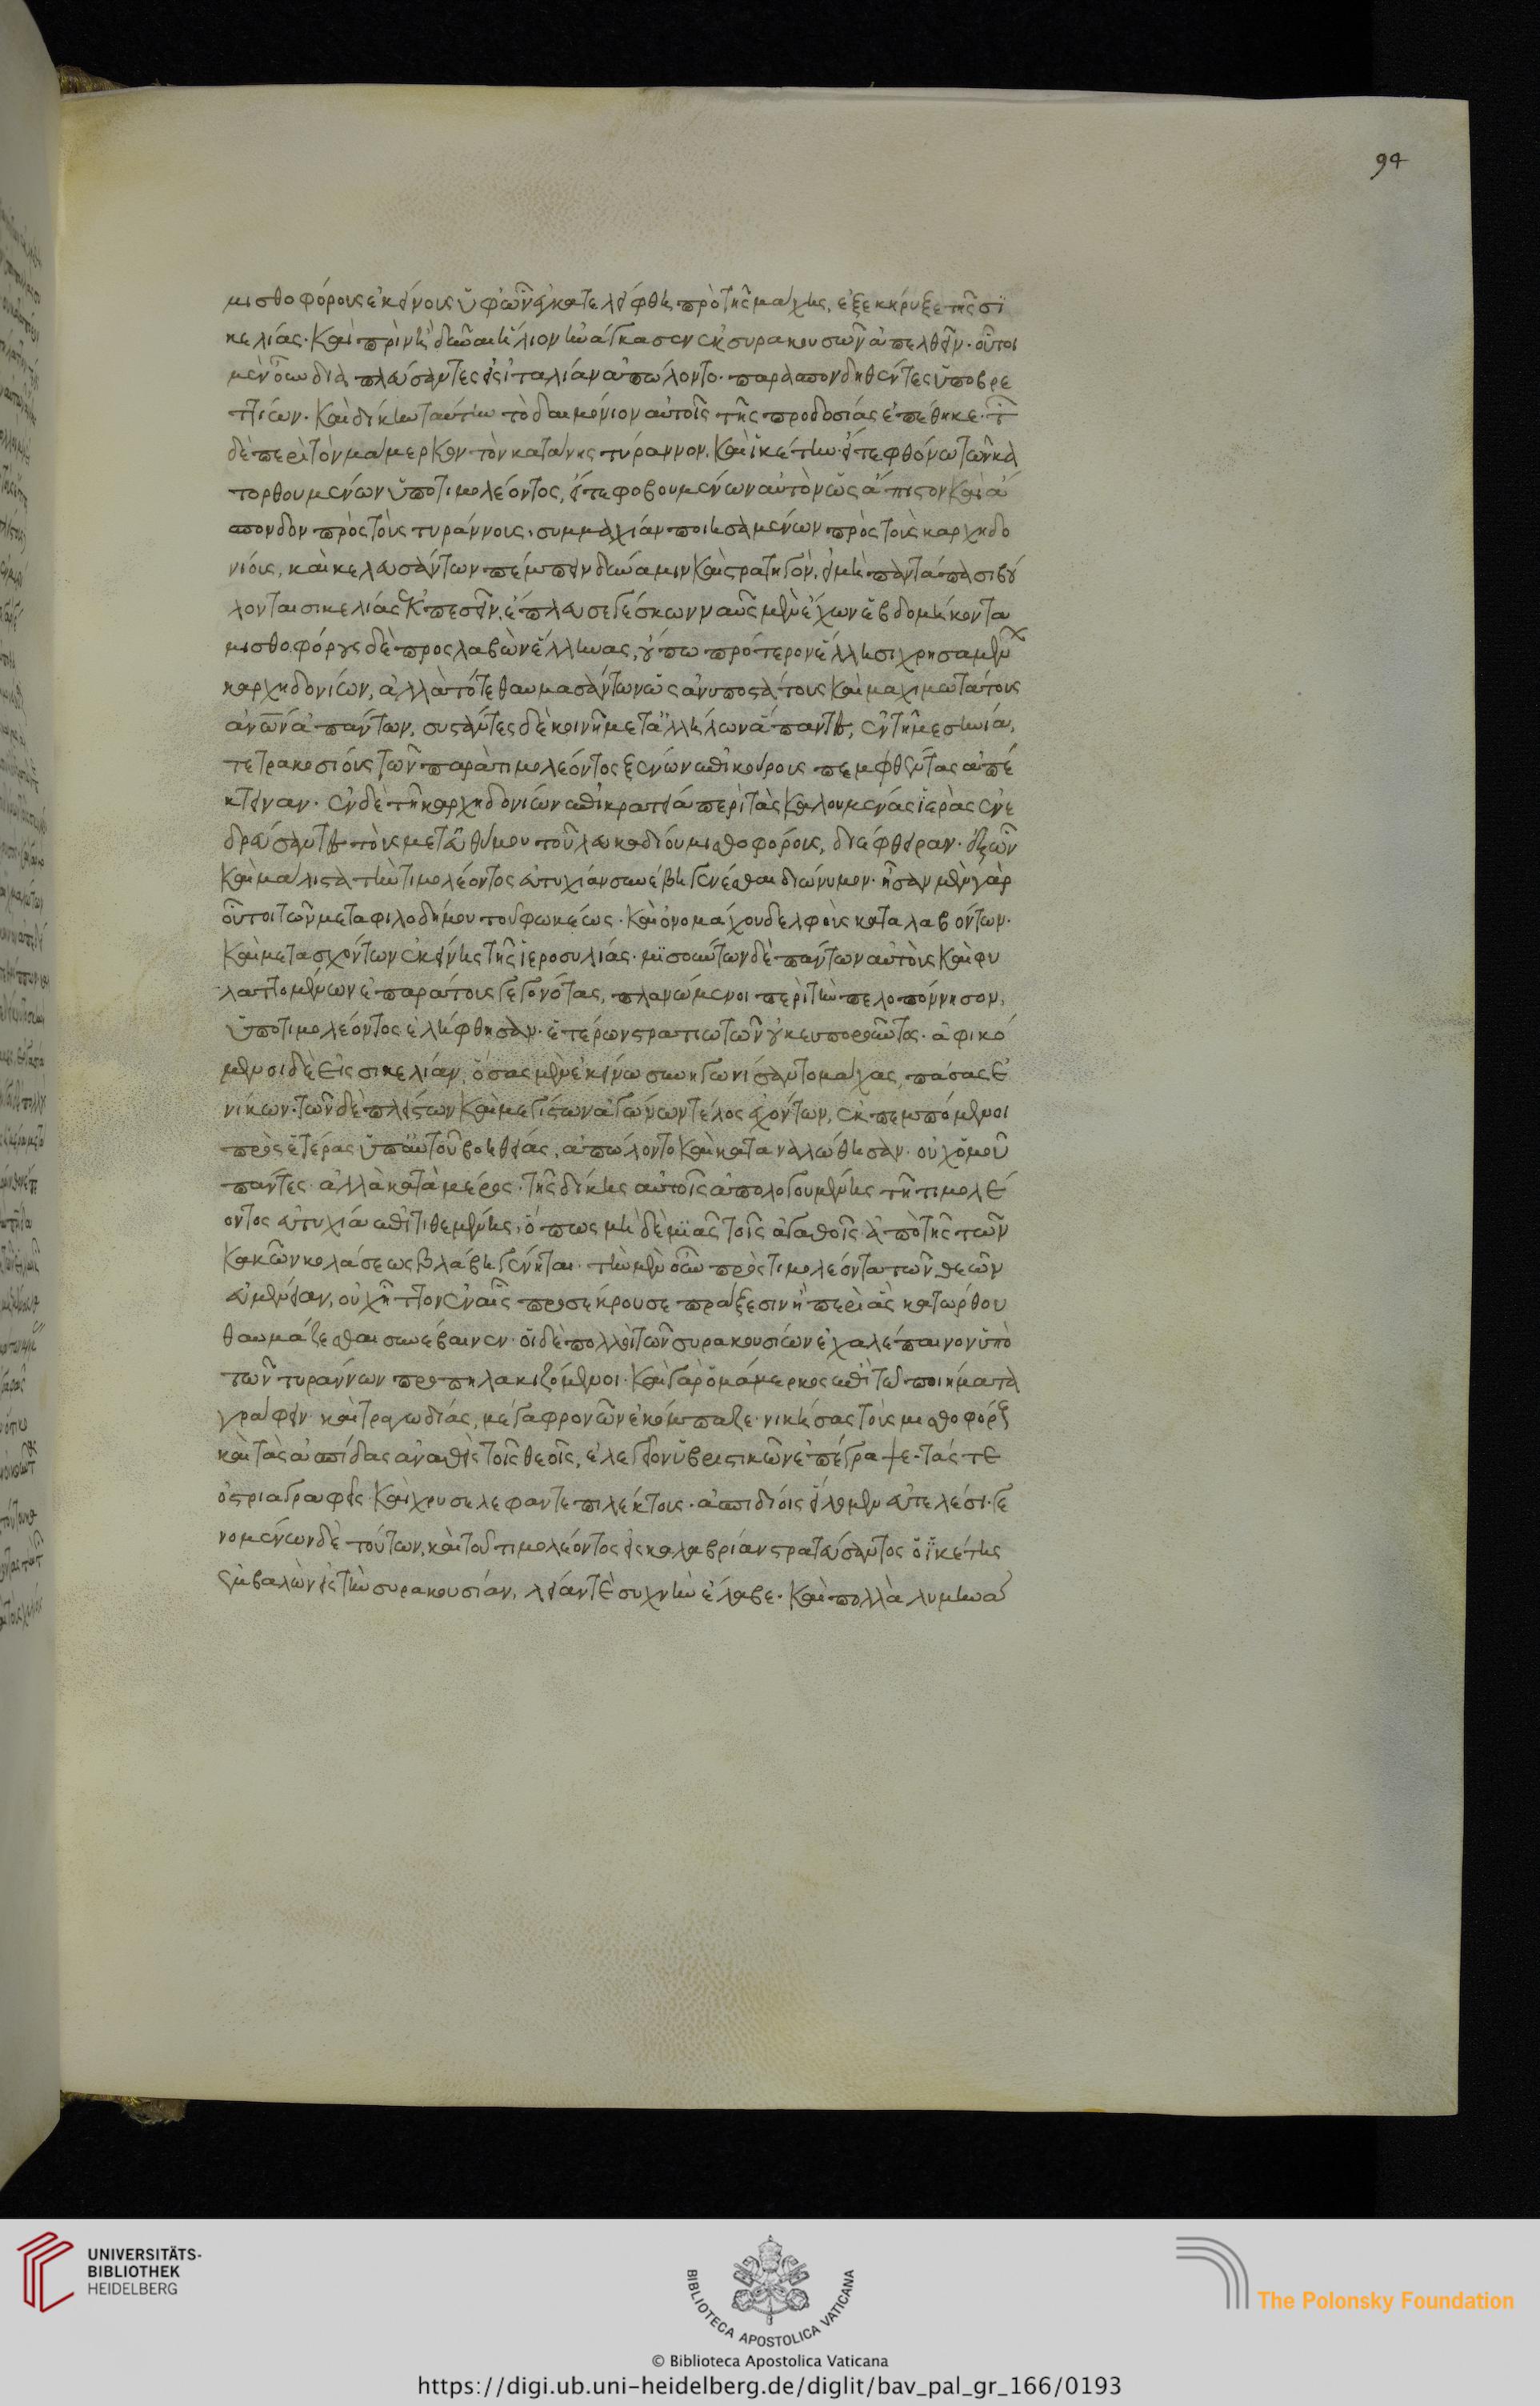 94
μισθοφόρους ἐκείνους ὑφ' ὧν ἐγκατελείφθη πρὸ τῆς μάχης, ἐξεκήρυξε τῆς σι
κελίας· καὶ πρὶν ἢ δῦναι ἥλιον ἠνάγκασεν ἐκ συρακουσῶν ἀπελθεῖν· οὗτοι
μὲν οὖν διαπλεύσαντες εἰς ἰταλίαν ἀπώλοντο· παρασπονδηθέντες ὑπὸ βρε
ττίων· καὶ δίκην ταύτην τὸ δαιμόνιον αὐτοῖς τῆς προδοσίας ἐπέθηκε· τῶν
δὲ περὶ τὸν μάμερκον τὸν κατάνης τύραννον· καὶ ἱκέτην· εἴτε φθόνῳ τῶν κα
τορθουμένων ὑπὸ τιμολέοντος, εἴτε φοβουμένων αὐτὸν ὡς ἄπιστον καὶ ἄ
σπονδον πρὸς τοὺς τυράννους· συμμαχίαν ποιησαμένων πρὸς τοὺς καρχηδο
νίους, καὶ κελευσάντων πέμπειν δύναμιν καὶ στρατηγὸν, εἰ μὴ παντάπασι βού
λονται σικελίας ἐκπεσεῖν, ἔπλευσε γέσκων ναῦς μὲν ἔχων ἑβδομήκοντα
μισθοφόρους δὲ προσλαβὼν ἕλληνας, οὔπω πρότερον ἕλλησι χρησαμένων
καρχηδονίων, ἀλλὰ τότε θαυμασάντων ὡς ἀνυποστάτους καὶ μαχιμωτάτους
ἀνθρώπων ἁπάντων, συστάντες δὲ κοινῇ μετ' ἀλλήλων ἅπαντες, ἐν τῇ μεσηνίᾳ,
τετρακοσίους τῶν παρὰ τιμολέοντος ξένων ἐπικούρους πεμφθέντας ἀπέ
κτειναν· ἐν δὲ τῇ καρχηδονίων ἐπικρατείᾳ περὶ τὰς καλουμένας ἱερὰς ἐνε
δρεύσαντες τοὺς μετ' εὐθύμου τοῦ λευκαδίου μισθοφόρους, διέφθειραν· ἐξ ὧν
καὶ μάλιστα τὴν τιμολέοντος εὐτυχίαν συνέβη γενέσθαι διώνυμον· ἦσαν μὲν γὰρ
οὗτοι τῶν μετὰ φιλοδήμου τοῦ φωκέως· καὶ ὀνομάχου δελφοὺς καταλαβόντων·
καὶ μετασχόντων ἐκείνης τῆς ἱεροσυλίας· μισούντων δὲ πάντων αὐτοὺς καὶ φυ
λαττομένων ἐπαράτους γεγονότας, πλανώμενοι περὶ τὴν πελοπόννησον,
ὑπὸ τιμολέοντος ἐλήφθησαν· ἑτέρων στρατιωτῶν οὐκ εὐποροῦντος· ἀφικό
μενοι δὲ εἰς σικελίαν, ὅσας μὲν ἐκείνῳ συνηγωνίσαντο μάχας, πάσας ἐ
νίκων· τῶν δὲ πλείστων καὶ μεγίστων ἀγώνων τέλος ἐχόντων, ἐκπεμπόμενοι
πρὸς ἑτέρας ὑπ' αὐτοῦ βοηθείας, ἀπώλοντο καὶ καταναλώθησαν· οὐχ ὁμοῦ
πάντες· ἀλλὰ κατὰ μέρος· τῆς δίκης αὐτοῖς ἀπολογουμένης τῇ τιμολέ
οντος εὐτυχίᾳ ἐπιτιθεμένης, ὅπως μηδεμία τοῖς ἀγαθοῖς ἀπὸ τῆς τῶν
κακῶν κολάσεως βλάβη γένηται· τὴν μὲν οὖν πρὸς τιμολέοντα τῶν θεῶν
εὐμένειαν, οὐχ ἧττον ἐν αἷς προσέκρουσε πράξεσιν ἢ περὶ ἃς κατώρθου
θαυμάζεσθαι συνέβαινεν· οἱ δὲ πολλοὶ τῶν συρακουσίων ἐχαλέπαινον ὑπὸ
τῶν τυράννων προπηλακιζόμενοι· καὶ γὰρ ὁ μάμερκος ἐπὶ τῷ ποιήματα
γράφειν καὶ τραγωδίας, μέγα φρονῶν ἐκόμπαζε· νικήσας τοὺς μισθοφόρους
καὶ τὰς ἀσπίδας ἀναθεὶς τοῖς θεοῖς, ἐλεγεῖον ὑβριστικῶν ἐπέγραψε· τάς τε
ὀστριαγραφεῖς καὶ χρυσελεφαντεπιλέκτους· ἀσπιδίοις εἵλομεν εὐτελέσι· γε
νομένων δὲ τούτων, καὶ τοῦ τιμολέοντος εἰς καλαβρίαν στρατεύσαντος ὁ ἱκέτης
ἐμβαλὼν εἰς τὴν συρακουσίαν, λείαν τὲ συχνὴν ἔλαβε· καὶ πολλὰ λυμηνά
UNIVERSITÄTS-
BIBLIOTHEK
HEIDELBERG
BIBLIOTECA APOSTOLICA VATICANA
The Polonsky Foundation
© Biblioteca Apostolica Vaticana
https://digi.ub.uni-heidelberg.de/diglit/bav_pal_gr_166/0193